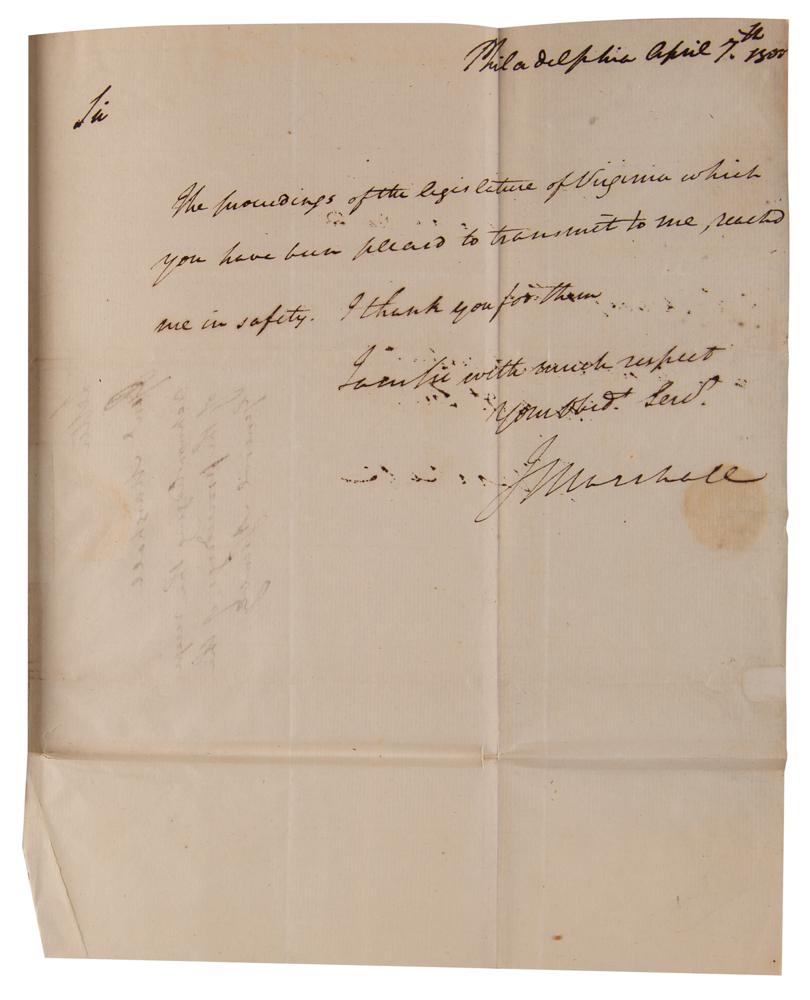 Philadelphia April 7.th 1800
Sir
The proceedings of the legislature of Virginia which
you have been pleasd to transmit to me, reachd
me in safety. I thank you for them
I am Sir with much respect
Your Obedt. Servt.
J Marshall